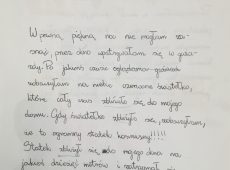 W pewną piękną noc nie mogłam za-
snąć, przez okno wpatrywałam się w gwia-
zdy. Po jakimś czasie oglądania
zobaczyłam na niebie czerwone światełko,
które cały czas zbliżało się do mojego
domu. Gdy światełko zbliżyło się, zobaczyłam,
że to ogromny statek kosmiczny!!!!
Statek zbliżył się do mojego okna na
jakieś dziesięć metrów i zatrzymał się